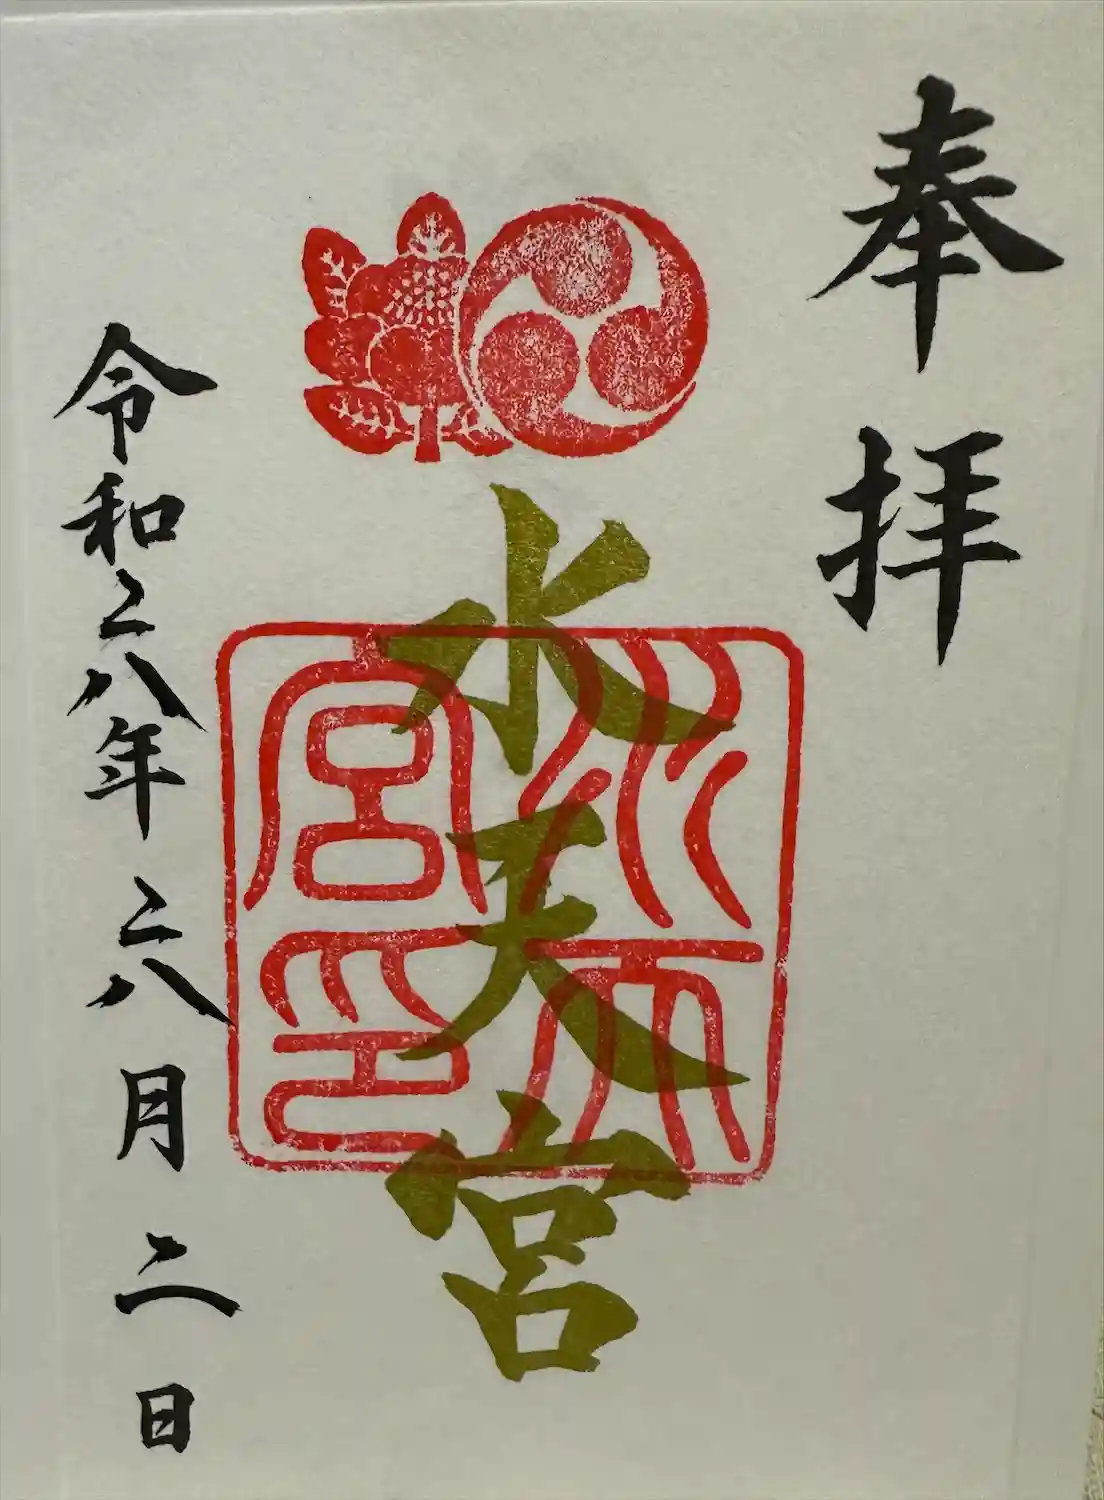 奉拝
水天宮
水天宮印
令和六年六月二日